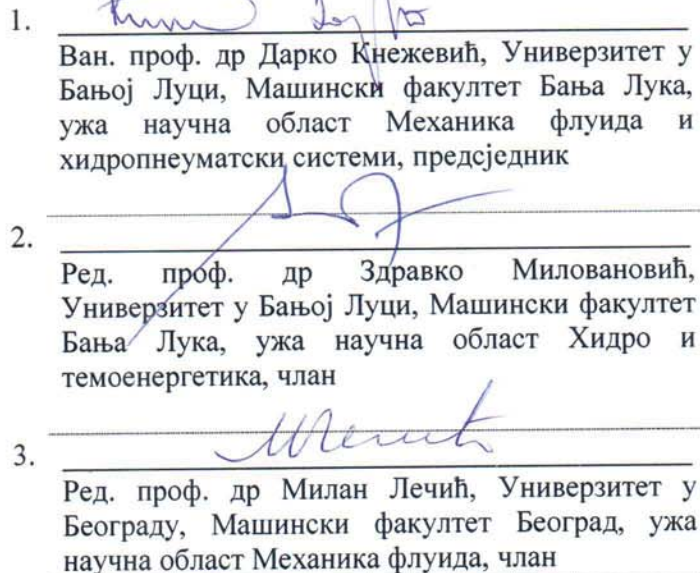 1.
Ван. проф. др Дарко Кнежевић, Универзитет у
Бањој Луци, Машински факултет Бања Лука,
ужа научна област Механика флуида и
хидропнеуматски системи, предсједник
2.
Ред. проф. др Здравко Миловановић,
Универзитет у Бањој Луци, Машински факултет
Бања Лука, ужа научна област Хидро и
темоенергетика, члан
3.
Ред. проф. др Милан Лечић, Универзитет у
Београду, Машински факултет Београд, ужа
научна област Механика флуида, члан